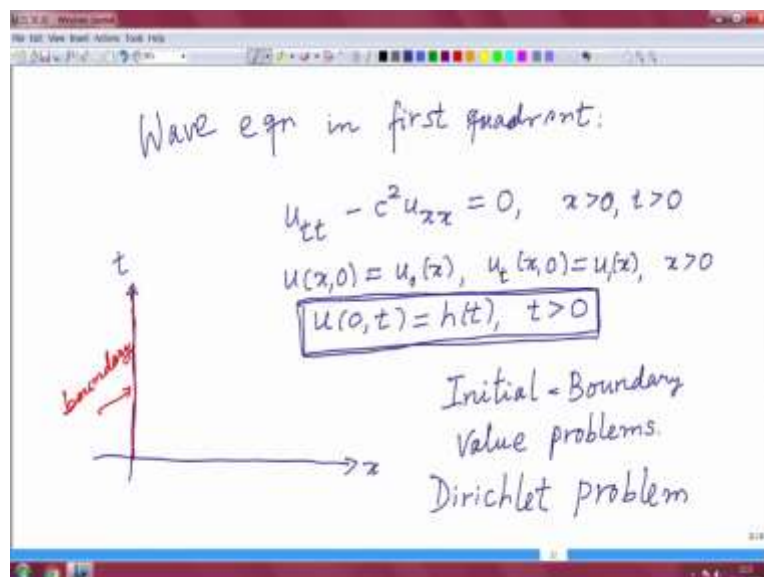 File Edit View Insert Actions Tools Help
Wave eqn in first quadrant:
u_tt - c²u_xx = 0, x>0, t>0
u(x,0) = u₀(x), u_t(x,0)=u₁(x), x>0
u(0,t) = h(t), t>0
t
boundary
x
Initial - Boundary
Value problems.
Dirichlet problem